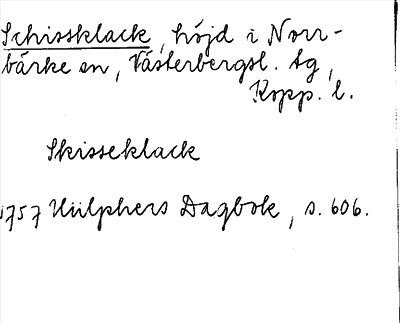 Schissklack, höjd i Norr-
bärke sn, Västerbergsl. tg,
Kopp. l.
Skisseklack
1757 Hülphers Dagbok, s. 606.